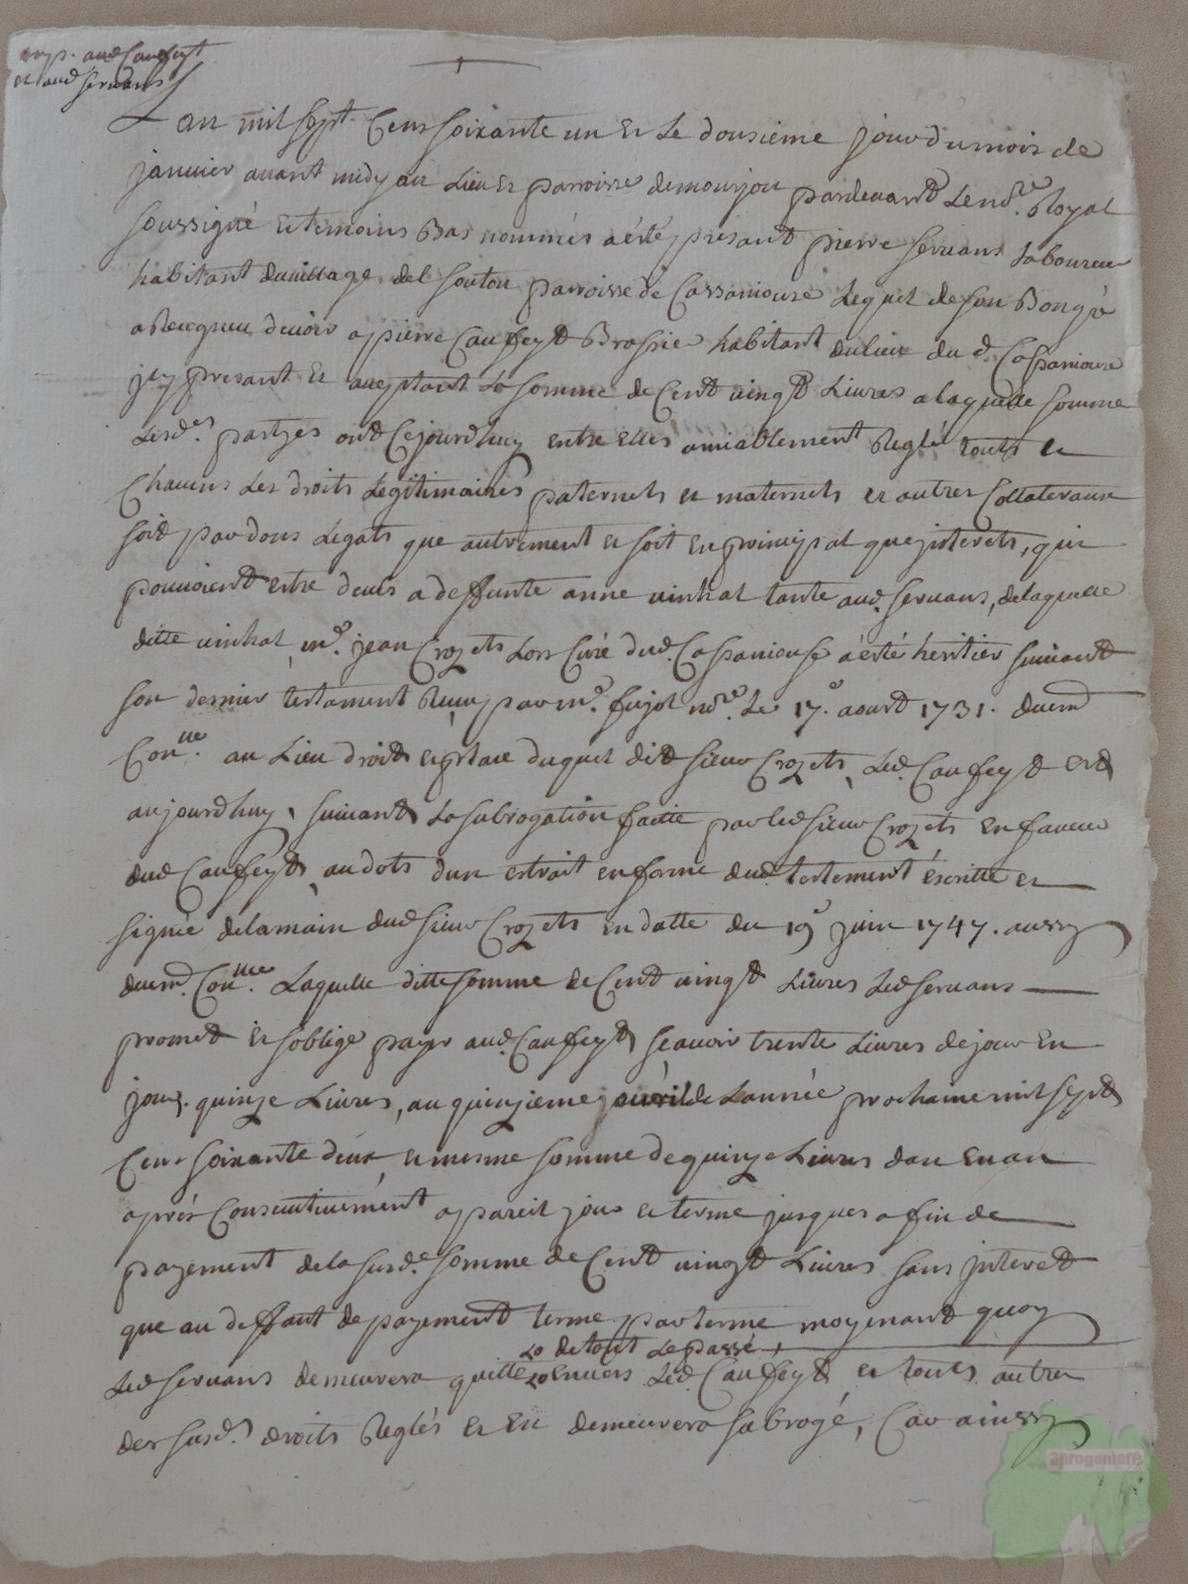 exp. aud Caufeyt
et aud servans
L an mil sept Cens soixante un et le dousieme jour du mois de
janvier avant midy au Lieu et parroisse de mourjou pardevant Le nore. Royal
soussigné et temoins Bas nommés a été present pierre servans Laboureur
habitant du village del soutou parroisse de Cassaniouse Lequel de son Bon gré
a Recognu devoir a pierre Caufeyt Brassier habitant du lieu dud. Cassaniouse
jcy present et aceptant La somme de Cent vingt Livres a laquelle somme
Lesdes. partyes ont Cejourdhuy entre elles amiablement Reglé touts et
Chacuns Les droits Legitimaires paternels et maternels et autres Collateraux
soit par dons Legats que autrement et soit en principal que jnterets, qui
pouvoient estre deus a deffunte anne vinhal tante aud. servans, de laquelle
ditte vinhal, me. jean Crozets Lors Curé dud. Cassaniouse a été heritier suivant
son dernier testament Reçu par me. fujol nore. Le 17e. aoust 1731. duemt
Conlle. au Lieu droit et place duquel dit sieur Crozets, Led. Caufeyt est
aujourdhuy, suivant La subrogation faitte par led sieur Crozets en faveur
dud Caufeyt, au dots dun extrait en forme dud testement écritte et
signée de la main dud sieur Crozets en datte du 19e juin 1747. aussy
duemt. Conlle. Laquelle ditte somme de Cent vingt Livres Led servans
promet et soblige payer aud. Caufeyt scavoir trente Livres de jour en
jour. quinze Livres, au quinzieme avril de Lannée prochaine mil sept
Cens soixante deux et mesme somme de quinze Livres dan en an
aprés Consecutivement a pareil jour et terme jusques a fin de
payement de la susde. somme de Cent vingt Livres sans jnteret
que au deffaut de payement terme par terme moyenant quoy
Lo de tout Le passé
Led servans demeurera quitte Lo envers Led. Caufeyt et touts autres
des susds. droits Reglés et en demeurera subrogé, Car ainssy
aprogemere